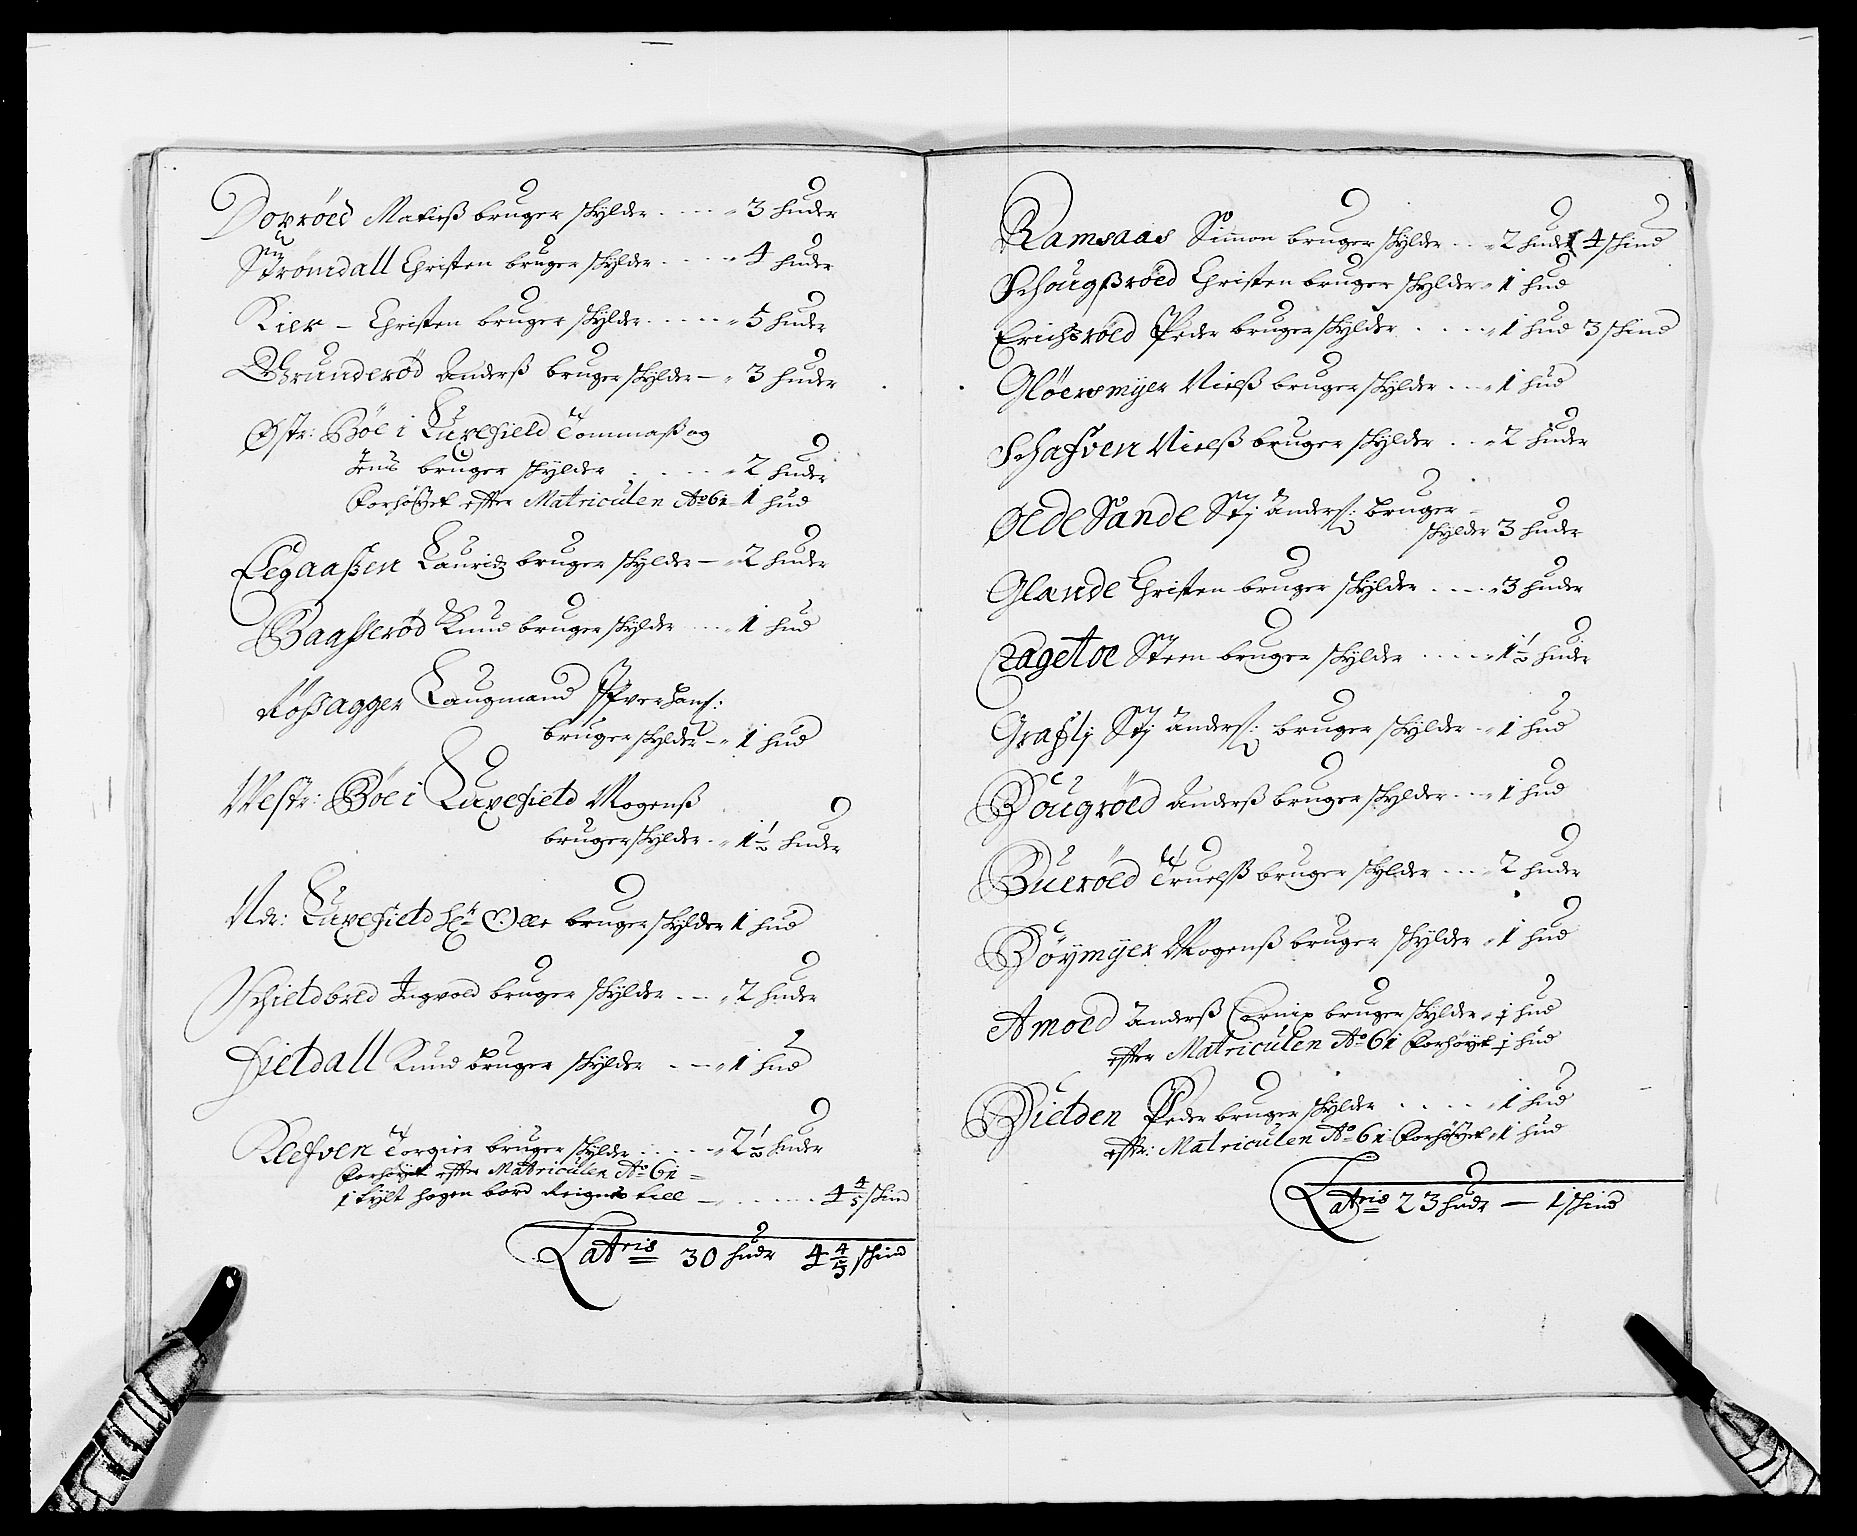 Dorröed Matiß bruger skylder . . . . 3 huder
Strömdall Christen bruger skylder . . . . 4 huder
Kier – Christen bruger skylder . . . . . 5 huder
Grunderöd Anderß bruger skylder – 3 huder
Østr: Böe i Luxefield Tommaß og
Jens bruger skylder . . . . . 2 huder
Forhöyet efter Matriculen Ao 61 – 1 hud
Eegaaßen Lauridz bruger skylder – 2 huder
Baaßeröd Knud bruger skylder . . . . 1 hud
Roßagger Laugmand Ifver Hans:
bruger skylder – 1 hud
Westr: Böe i Luxefield Mogenß
bruger skylder . . 1 1/2 huder
Ndr: Luxefield Hr Olle bruger skylder 1 hud
Schieldbred Ingvold bruger skylder . . – 2 huder
Hieldall Knud bruger skylder . – – 1 hud
Klefven Torgier bruger skylder . . . . . 2 1/2 huder
Forhöyet efter Matriculen Ao 61 =
1 tylt hagen bord reignet till – . . . . . . 4 4/5 skind
Latris 30 hudr 4 4/5 skind
Ramsaas Simon bruger skylder . . . 2 huder 4 skind
Schougßröed Christen bruger skylder 1 hud
Erichsröed Peder bruger skylder . . . . . 1 hud 3 skind
Glöersmyer Nielß bruger skylder . . . 1 hud
Schafven Nielß bruger skylder . . . 2 huder
Oede Sande Sti Anderß: bruger
skylder 3 huder
Glænde Christen bruger skylder . . . . 3 huder
Sagetoe Steen bruger skylder . . . . 1 1/2 huder
Grafli Sti Anderß: bruger skylder – 1 hud
Bougröed Anderß bruger skylder . . . 1 hud
Bueröed Truelß bruger skylder . . . . 2 huder
Böymyer Mogenß bruger skylder 1 hud
Amoed Anderß bruger skylder 1 hud
efter Matriculen Ao 61 Forhöyet 1 hud
Hielden Peder bruger skylder . . . . . 1 hud
eftr: Matriculen Ao 61 Forhöyet 1 hud
Latris 23 hudr — 1 skind